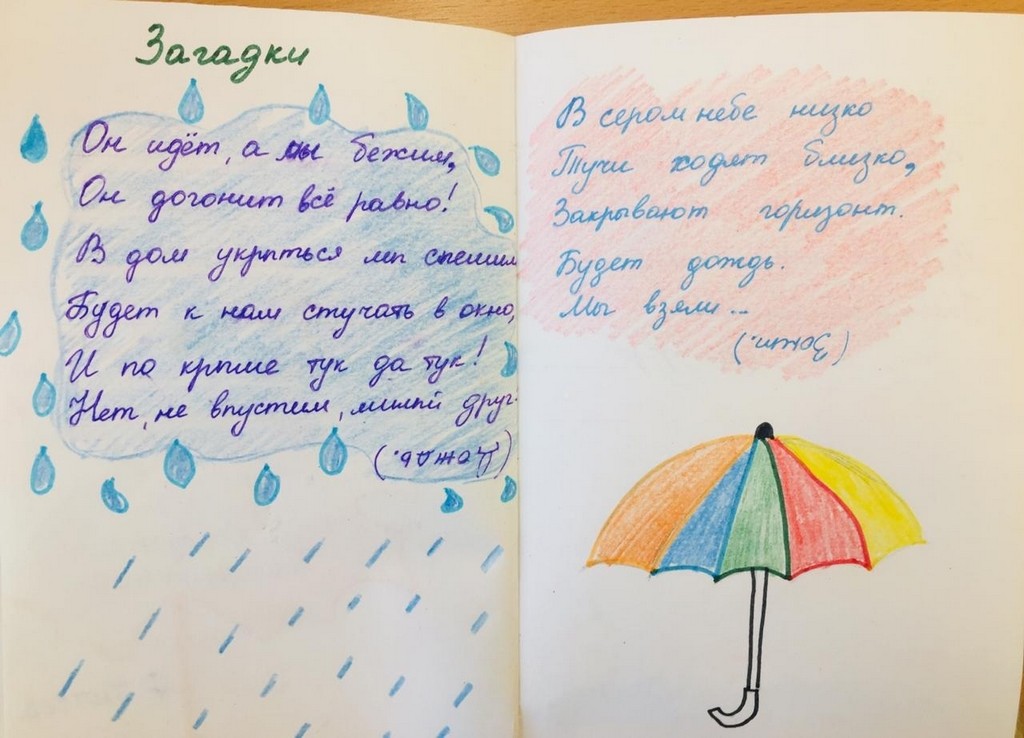 Загадки
Он идёт, а мы бежим,
Он догонит всё равно!
В дом укрыться мы спешим
Будет к нам стучать в окно,
И по крыше тук да тук!
Нет, не впустим, милый друг.
(Дождь.)
В сером небе низко
Тучи ходят близко,
Закрывают горизонт.
Будет дождь.
Мы взяли ..
(Зонт.)